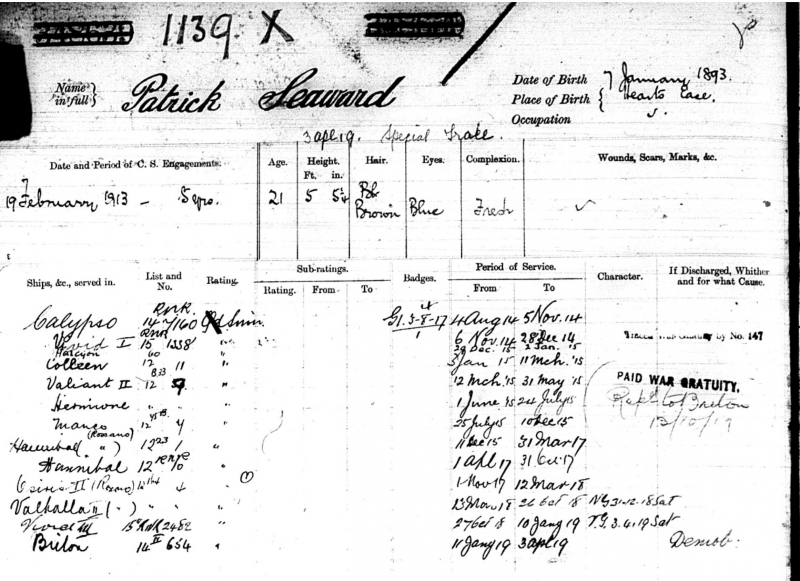 1139 X
Name in full} Patrick Seaward
Date of Birth 7 January 1893.
Place of Birth { Hearts Ease.
Occupation
3 apl 19. Special
Date and Period of C. S. Engagements. Age. Height. Ft. in. Hair. Eyes. Complexion. Wounds, Scars, Marks, &c.
February 1913 - 5 yrs. 21 5 Brown Blue Fresh
Ships, &c., served in. List and No. Rating. Sub-ratings. Rating. From To Badges. Period of Service. From To Character. If Discharged, Whither and for what Cause.
Calypso RNR 14 Smn. G1. 3-8-17 4 Aug 14 5 Nov. 14
Vivid I RNR 15 1358 " 1 6 Nov. 14 28 Dec 14 by No. 147
Halcyon 60 29 Dec. '15 2 Jan. '15
Colleen 12 11 " 3 Jan 15 11 Mch. '15
Valiant II 12 9 " 12 Mch. '15 31 May '15 PAID WAR GRATUITY.
Hermione " " " 1 June 15 24 July 15 to Briton
Mango 12 4 " 25 July 15 10 Dec 15 13/10/19
Hannibal ( " ) 12 1 " 11 Dec 15 31 Mar 17
Hannibal 12 " 1 Apl 17 31 Oct 17
Osiris II " 1 Nov 17 12 Mar 18
Valhalla II ( " ) " " 13 Mar 18 26 Oct 18 N.G. 31.12.18 Sat
Vivid III 15 RNR 2482 " 27 Oct 18 10 Jany 19 T.G. 3.4.19 Sat
Briton 14 II 654 " 11 Jany 19 3 apl 19 Demob.